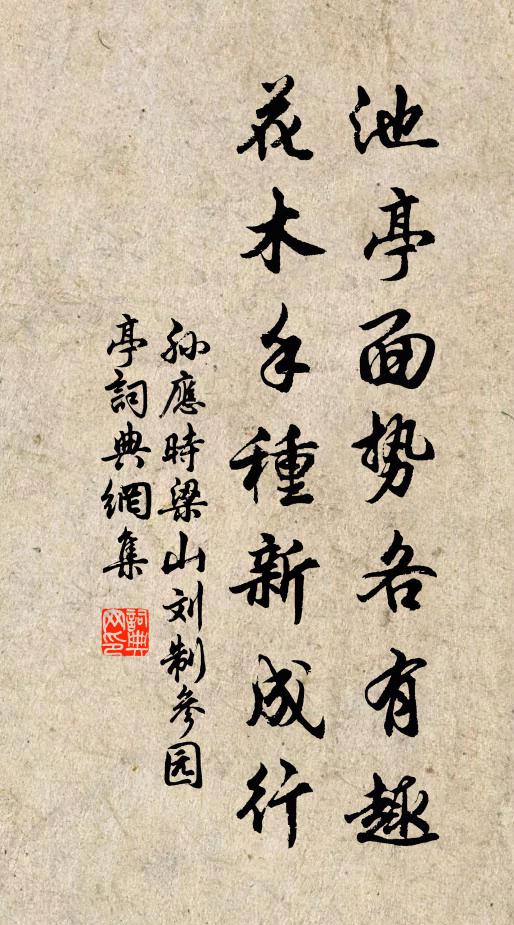 池亭面势各有趣
花木手種新成行
孙應時梁山刘制參园
亭詞典網集
詞典网印